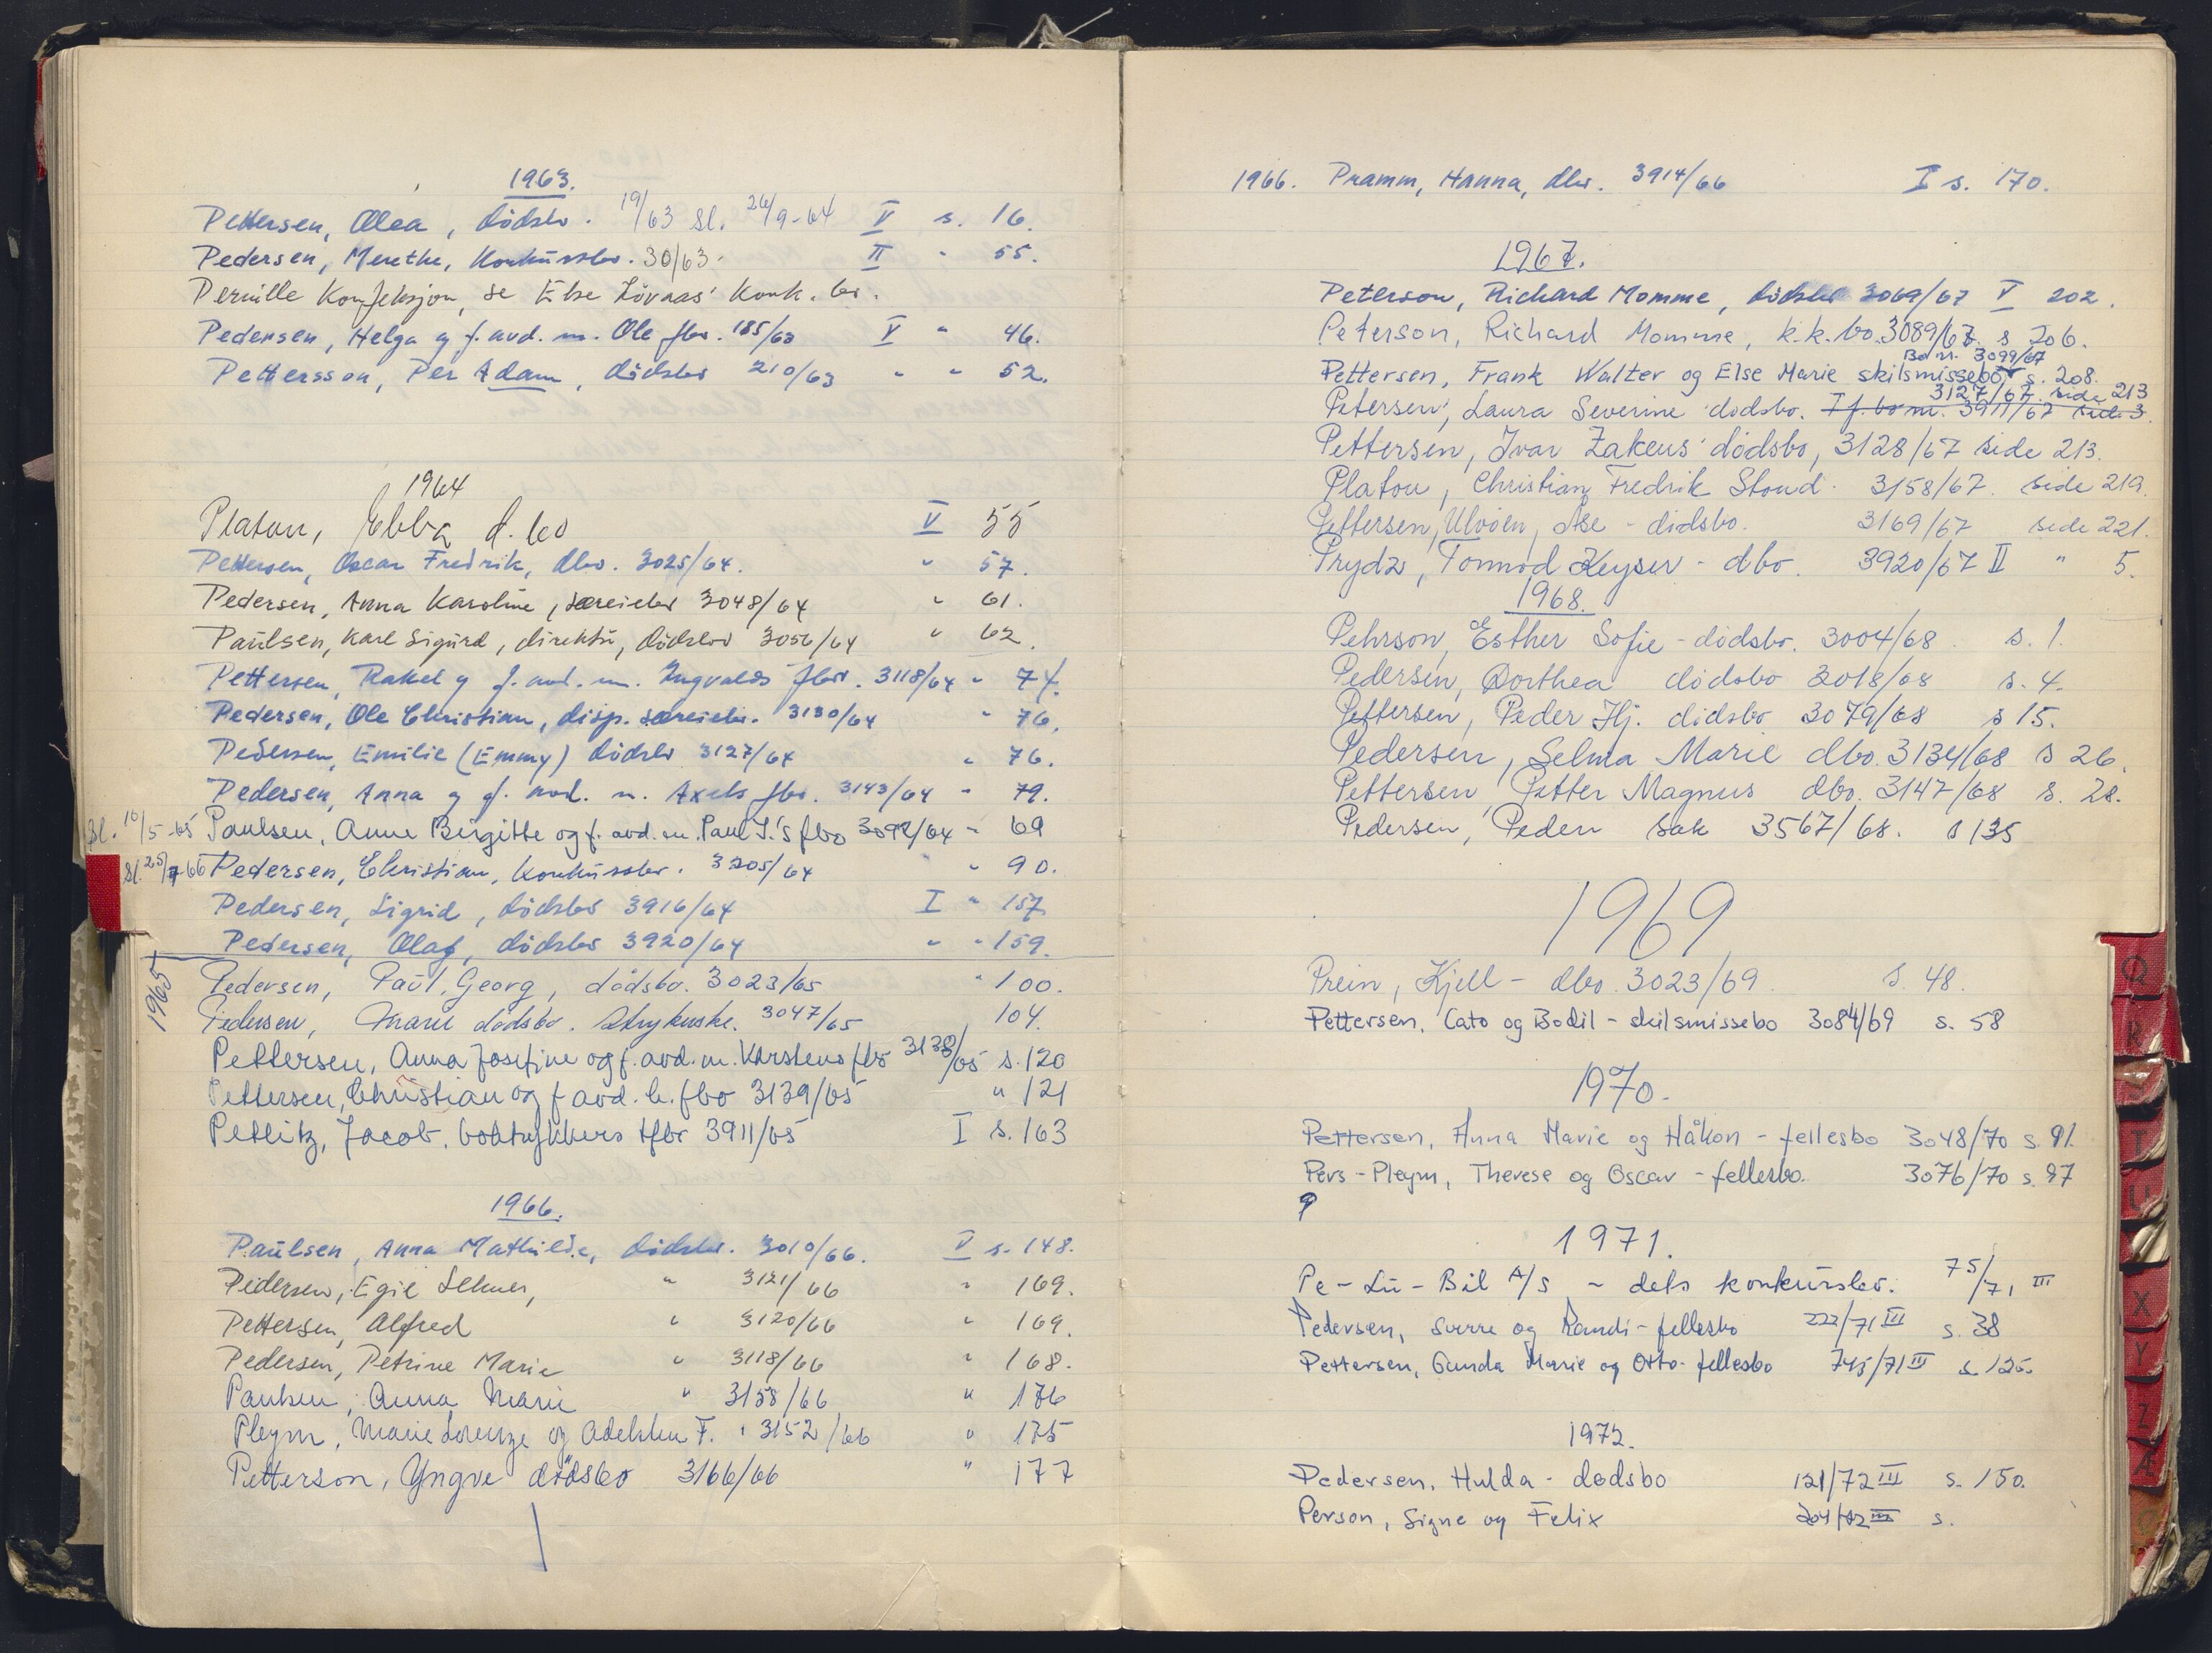 1963.
Pettersen, Olea, dödsbo. 19/63 sl. 26/9-64 V s. 16.
Pedersen, Merethe, Konkursbo. 30/63. II " 55.
Pernille Konfeksjon, se Else Lövaas' Konk. bo.
Pedersen, Helga og f. avd. m. Ole fbo. 185/63 V " 46.
Pettersson, Per Adam, dödsbo 210/63 " " 52.
1964
Platou, Ebba d. bo V 55
Pettersen, Oscar Fredrik, dbo. 3025/64. " 57.
Pedersen, Anna Karoline, særeiebo 3048/64 " 61.
Paulsen, Karl Sigurd, direktör, dödsbo 3056/64 " 62.
Pettersen, Rakel og f. avd. m. Ingvalds fbo. 3118/64 " 74.
Pedersen, Ole Christian, disp. særeiebo. 3130/64 " 76.
Pedersen, Emilie (Emmy) dödsbo 3127/64 " 76.
Pedersen, Anna og f. avd. m. Axels fbo. 3143/64 " 79.
Sl. 10/5-65 Paulsen, Anne Birgitte og f. avd. m. Paul J.'s fbo 3092/64 " 69
Sl. 25/7-66 Pedersen, Christian, Konkursbo. 3205/64 " 90.
Pedersen, Sigrid, dödsbo 3916/64 I " 157
Pedersen, Olaf, dödsbo 3920/64 " " 159.
1965
Pedersen, Paul Georg, dödsbo. 3023/65 " 100.
Pedersen, Marie dödsbo. Strykerske. 3047/65 104.
Pettersen, Anna Josefine og f. avd. m. Karstens fbo 3138/65 s. 120
Pettersen, Christian og f avd. h. fbo 3139/65 " 121
Petlitz, Jacob, boktrykkers tfbo 3911/65 I s. 163
1966.
Paulsen, Anna Mathilde, dödsbo. 3010/66. V s. 148.
Pedersen, Egil Selmer, " 3121/66 " 169.
Pettersen, Alfred " 3120/66 " 169.
Pedersen, Petrine Marie " 3118/66 " 168.
Paulsen, Anna Marie " 3158/66 " 176
Pleym, Marie Lorenze og Adelsten F. " 3152/66 " 175
Petterson, Yngve dödsbo 3166/66 " 177
1966. Pramm, Hanna, dbo. 3914/66 I s. 170.
1967.
Peterson, Richard Momme, dödsbo 3069/67 V 202.
Peterson, Richard Momme, k.k. bo. 3089/67. s 206.
Bo nr. 3099/67
Pettersen, Frank Walter og Else Marie skilsmissebo s. 208.
3127/67. side 213
Petersen, Laura Severine dødsbo. I f. bo nr. 3911/67 side 3.
Pettersen, Ivar Zakeus' dödsbo, 3128/67 side 213.
Platou, Christian Fredrik Stoud. 3158/67. side 219.
Pettersen, Ulvöen, Åse - dödsbo. 3169/67 side 221.
Prydz, Tormod Keyser - dbo. 3920/67 II " 5.
1968.
Pehrson, Esther Sofie - dødsbo. 3004/68. s. 1.
Pedersen, Dorthea dödsbo 3018/68 s. 4.
Pettersen, Peder Hj. dödsbo 3079/68 s 15.
Pedersen, Selma Marie dbo. 3134/68 s 26.
Pettersen, Petter Magnus dbo. 3147/68 s. 28.
Pedersen, Peder sak 3567/68. s 135
1969
Prein, Kjell - dbo. 3023/69. s. 48.
Pettersen, Cato og Bodil - skilsmissebo 3084/69 s. 58
1970.
Pettersen, Anna Marie og Håkon - fellesbo 3048/70 s. 91.
Pers-Pleym, Therese og Oscar - fellesbo. 3076/70 s. 97
P
1971.
Pe-Lü-Bil A/S - dets konkursbo. 75/71 III
Pedersen, Sverre og Randi - fellesbo 222/71 III s. 38
Pettersen, Gunda Marie og Otto - fellesbo 745/71 III s. 125.
1972.
Pedersen, Hulda - dødsbo 121/72 III s. 150.
Person, Signe og Felix 204/72 III s.
Q
R
T
U
X
Y
Z
Æ